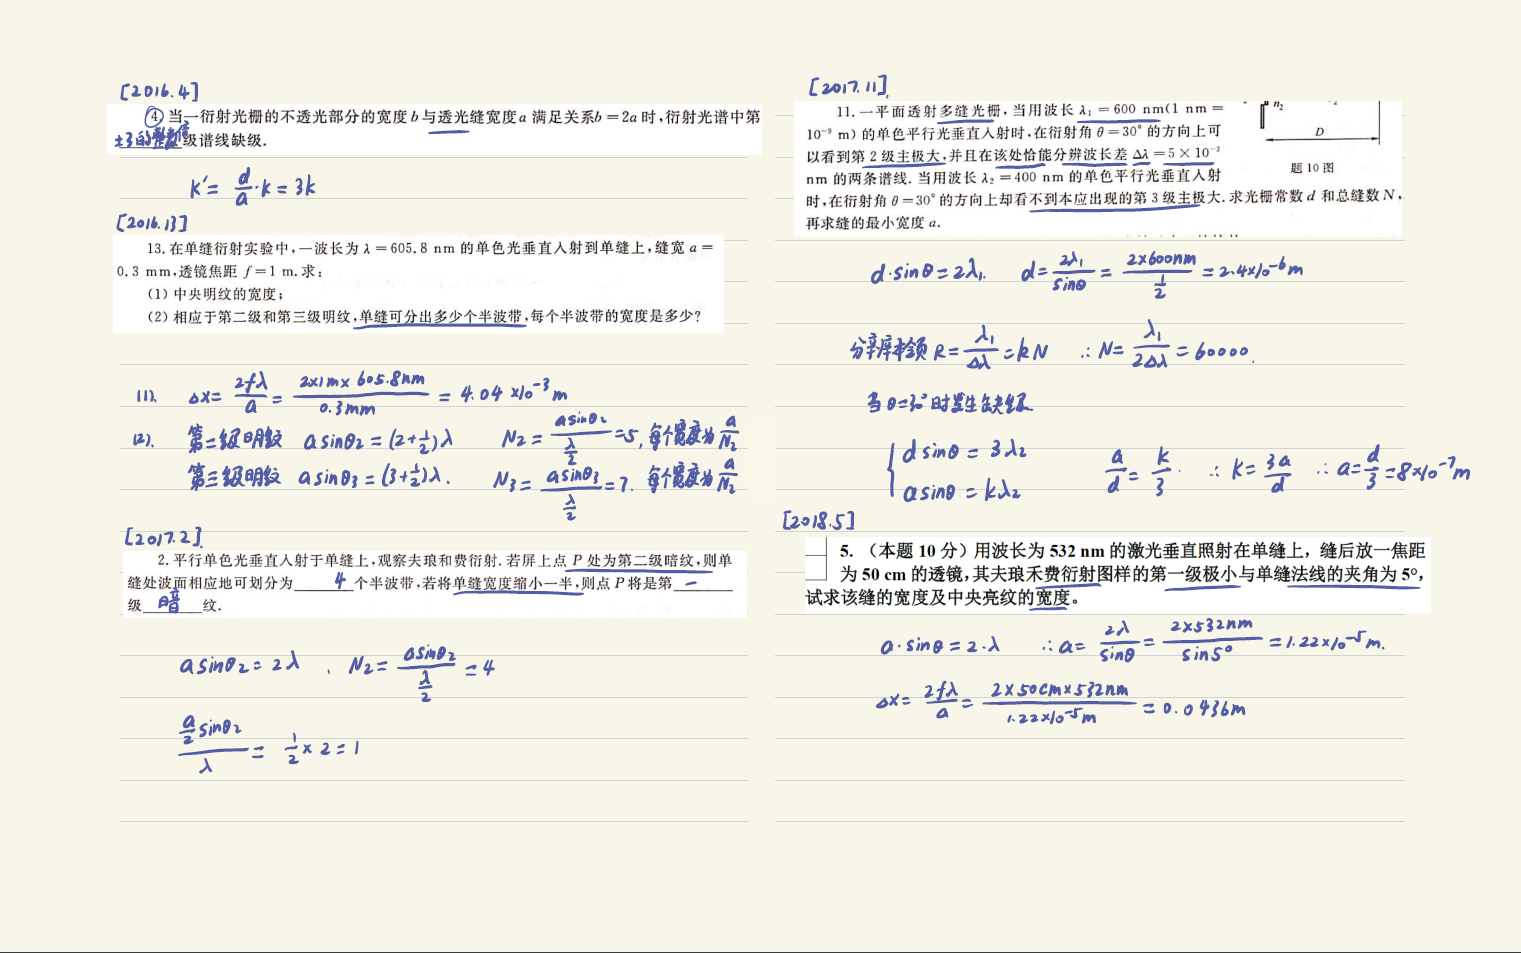 [2016.4]
④ 当一衍射光栅的不透光部分的宽度 b 与透光缝宽度 a 满足关系 b＝2a 时,衍射光谱中第
±3的整数倍 级谱线缺级.
k'= d/a·k = 3k
[2016.13]
13. 在单缝衍射实验中,一波长为 λ＝605.8 nm 的单色光垂直入射到单缝上,缝宽 a＝
0.3 mm,透镜焦距 f＝1 m. 求:
(1) 中央明纹的宽度;
(2) 相应于第二级和第三级明纹,单缝可分出多少个半波带,每个半波带的宽度是多少?
(1). Δx= 2fλ/a = 2×1m×605.8nm/0.3mm = 4.04×10⁻³m
(2). 第二级明纹 a sinθ₂=(2+1/2)λ N₂= a sinθ₂/(λ/2) =5, 每个宽度为 a/N₂
第三级明纹 a sinθ₃=(3+1/2)λ. N₃= a sinθ₃/(λ/2) =7. 每个宽度为 a/N₂
[2017.2]
2. 平行单色光垂直入射于单缝上,观察夫琅和费衍射. 若屏上点 P 处为第二级暗纹,则单
缝处波面相应地可划分为 4 个半波带,若将单缝宽度缩小一半,则点 P 将是第 一
级 暗 纹.
a sinθ₂=2λ , N₂= a sinθ₂/(λ/2) =4
(a/2 sinθ₂)/λ = 1/2×2=1
[2017.11]
11. 一平面透射多缝光栅,当用波长 λ₁＝600 nm(1 nm＝
10⁻⁹ m) 的单色平行光垂直入射时,在衍射角 θ＝30° 的方向上可
以看到第 2 级主极大,并且在该处恰能分辨波长差 Δλ＝5×10⁻³
nm 的两条谱线. 当用波长 λ₂＝400 nm 的单色平行光垂直入射
时,在衍射角 θ＝30° 的方向上却看不到本应出现的第 3 级主极大. 求光栅常数 d 和总缝数 N,
再求缝的最小宽度 a.
n₂
D
题 10 图
d·sinθ=2λ₁. d= 2λ₁/sinθ = 2×600nm/(1/2) = 2.4×10⁻⁶m
分辨本领 R= λ₁/Δλ =kN ∴N= λ₁/2Δλ = 60000.
当θ=30°时发生缺级
{ d sinθ = 3λ₂
a sinθ = kλ₂
a/d = k/3. ∴ k= 3a/d ∴ a= d/3 =8×10⁻⁷m
[2018.5]
5. （本题 10 分）用波长为 532 nm 的激光垂直照射在单缝上，缝后放一焦距
为 50 cm 的透镜，其夫琅禾费衍射图样的第一级极小与单缝法线的夹角为 5°，
试求该缝的宽度及中央亮纹的宽度。
a·sinθ=2·λ ∴a= 2λ/sinθ = 2×532nm/sin5° =1.22×10⁻⁵m.
Δx= 2fλ/a = 2×50cm×532nm/1.22×10⁻⁵m =0.0436m